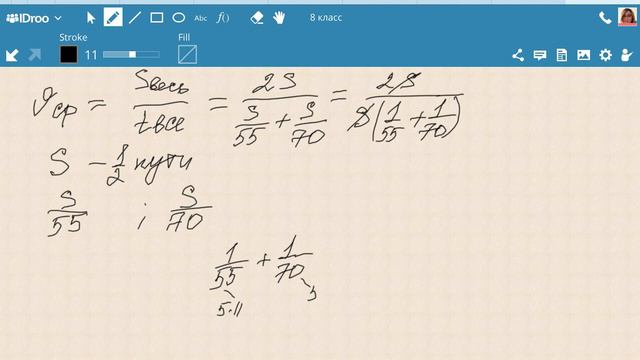 IDroo
Abc
f()
8 класс
Stroke
Fill
11
ϑср = Sвесь / tвсе = 2S / (S/55 + S/70) = 2S / S(1/55 + 1/70)
S – 1/2 пути
S/55 ; S/70
1/55 + 1/70
5·11